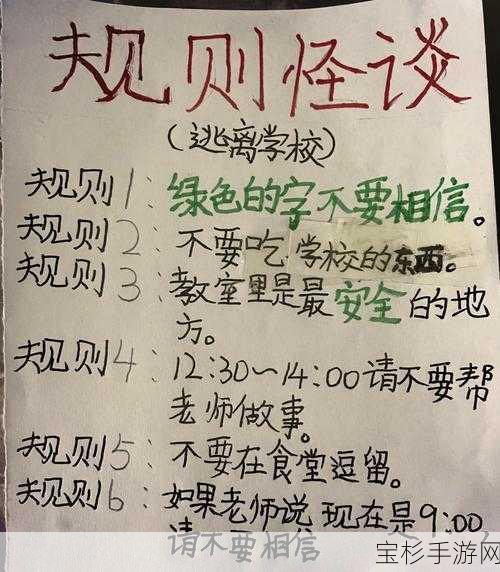 规则怪谈
(逃离学校)
规则1：绿色的字不要相信。
规则2：不要吃学校的东西。
规则3：教室里是最安全的地
方。
规则4：12:30～14:00请不要帮
老师做事。
规则5：不要在食堂逗留。
规则6：如果老师说现在是9:00
请不要相信
宝杉手游网